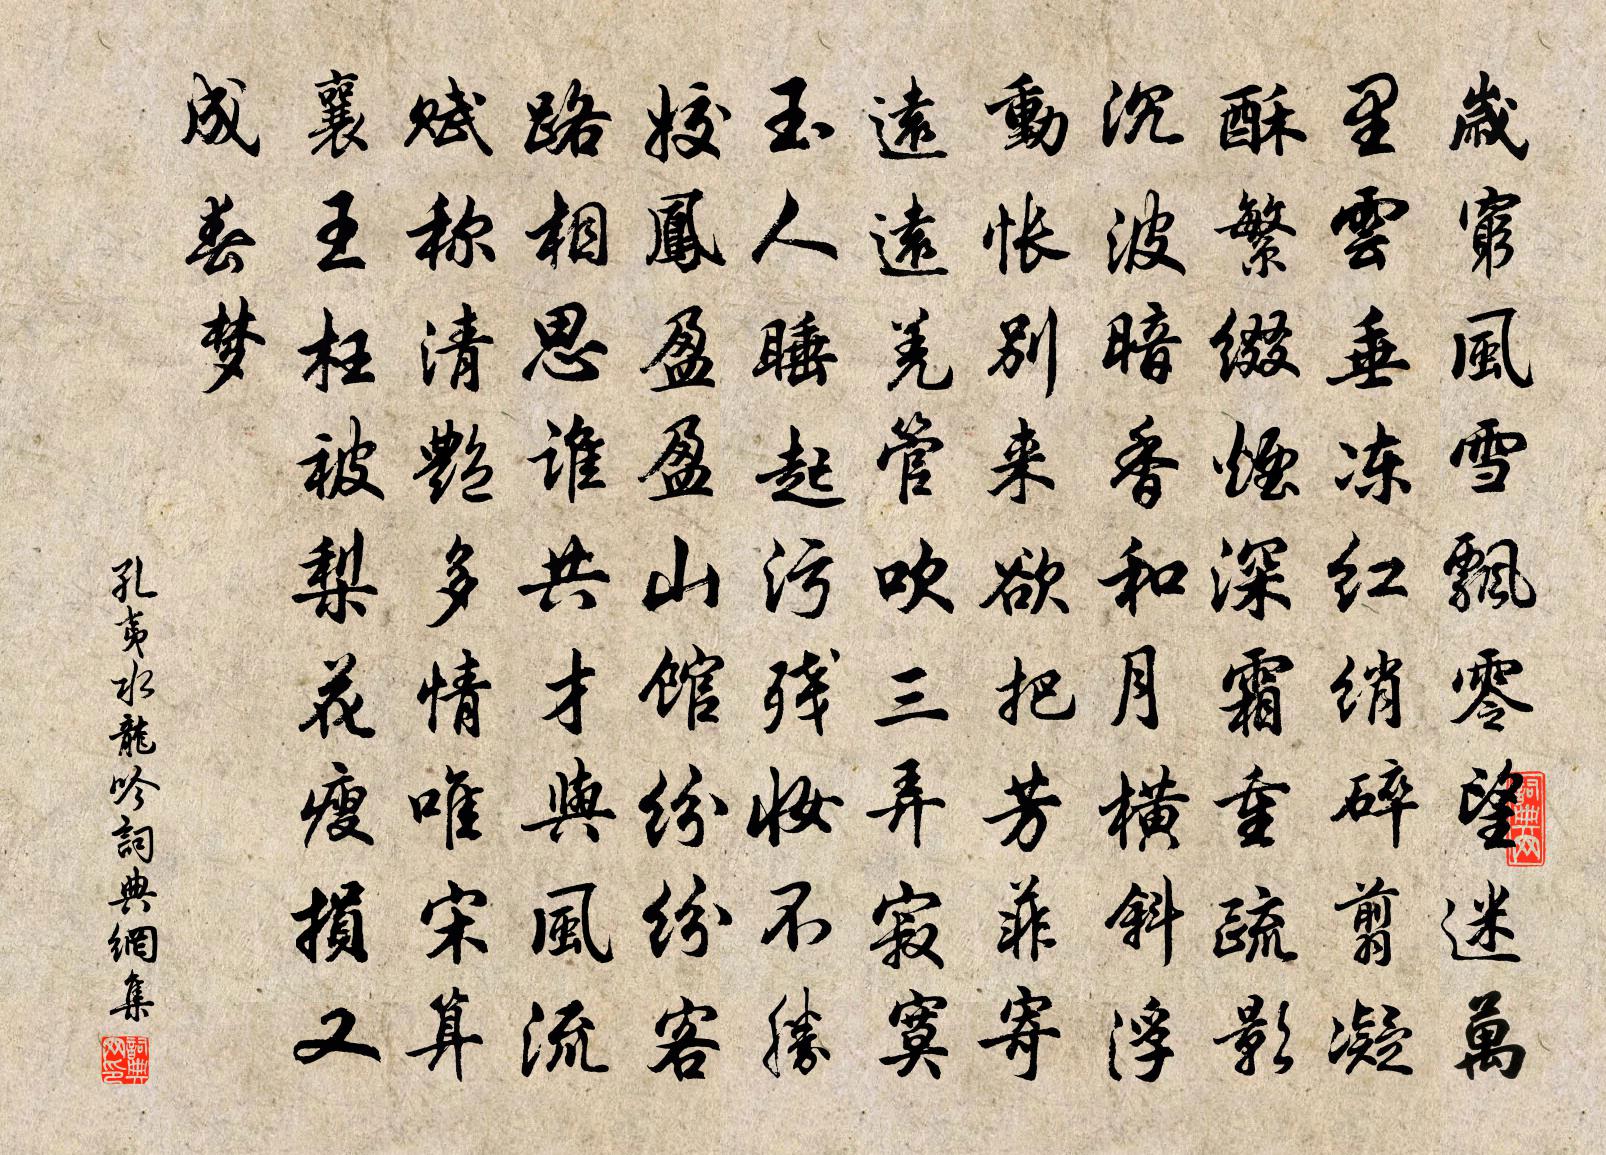 歲窮風雪飄零望迷萬
里雲垂冻红绡碎剪凝
酥繁缀煙深霜重疏影
沉波暗香和月横斜浮
動怅别来欲把芳菲寄
遠遠羌管吹三弄寂寞
玉人睡起污残妆不勝
姣鳳盈盈山馆纷纷客
路相思谁共才與風流
赋称清艷多情唯宋算
襄王枉被梨花瘦損又
成春梦
孔夷水龍吟詞典網集
詞典网
詞典网印